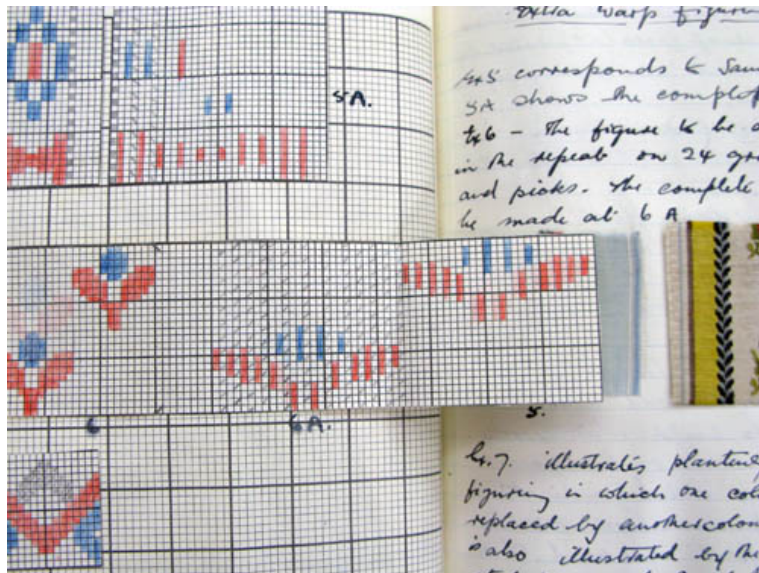 extra warp figuring
Ex 5 corresponds to Sam
5A shows the complet
Ex 6 – The figure to be d
in the repeat on 24 gr
and picks. The complete
be made at 6A
5A.
6
6A.
5.
Ex. 7. illustrates planting
figuring in which one colo
replaced by another colou
is also illustrated by the